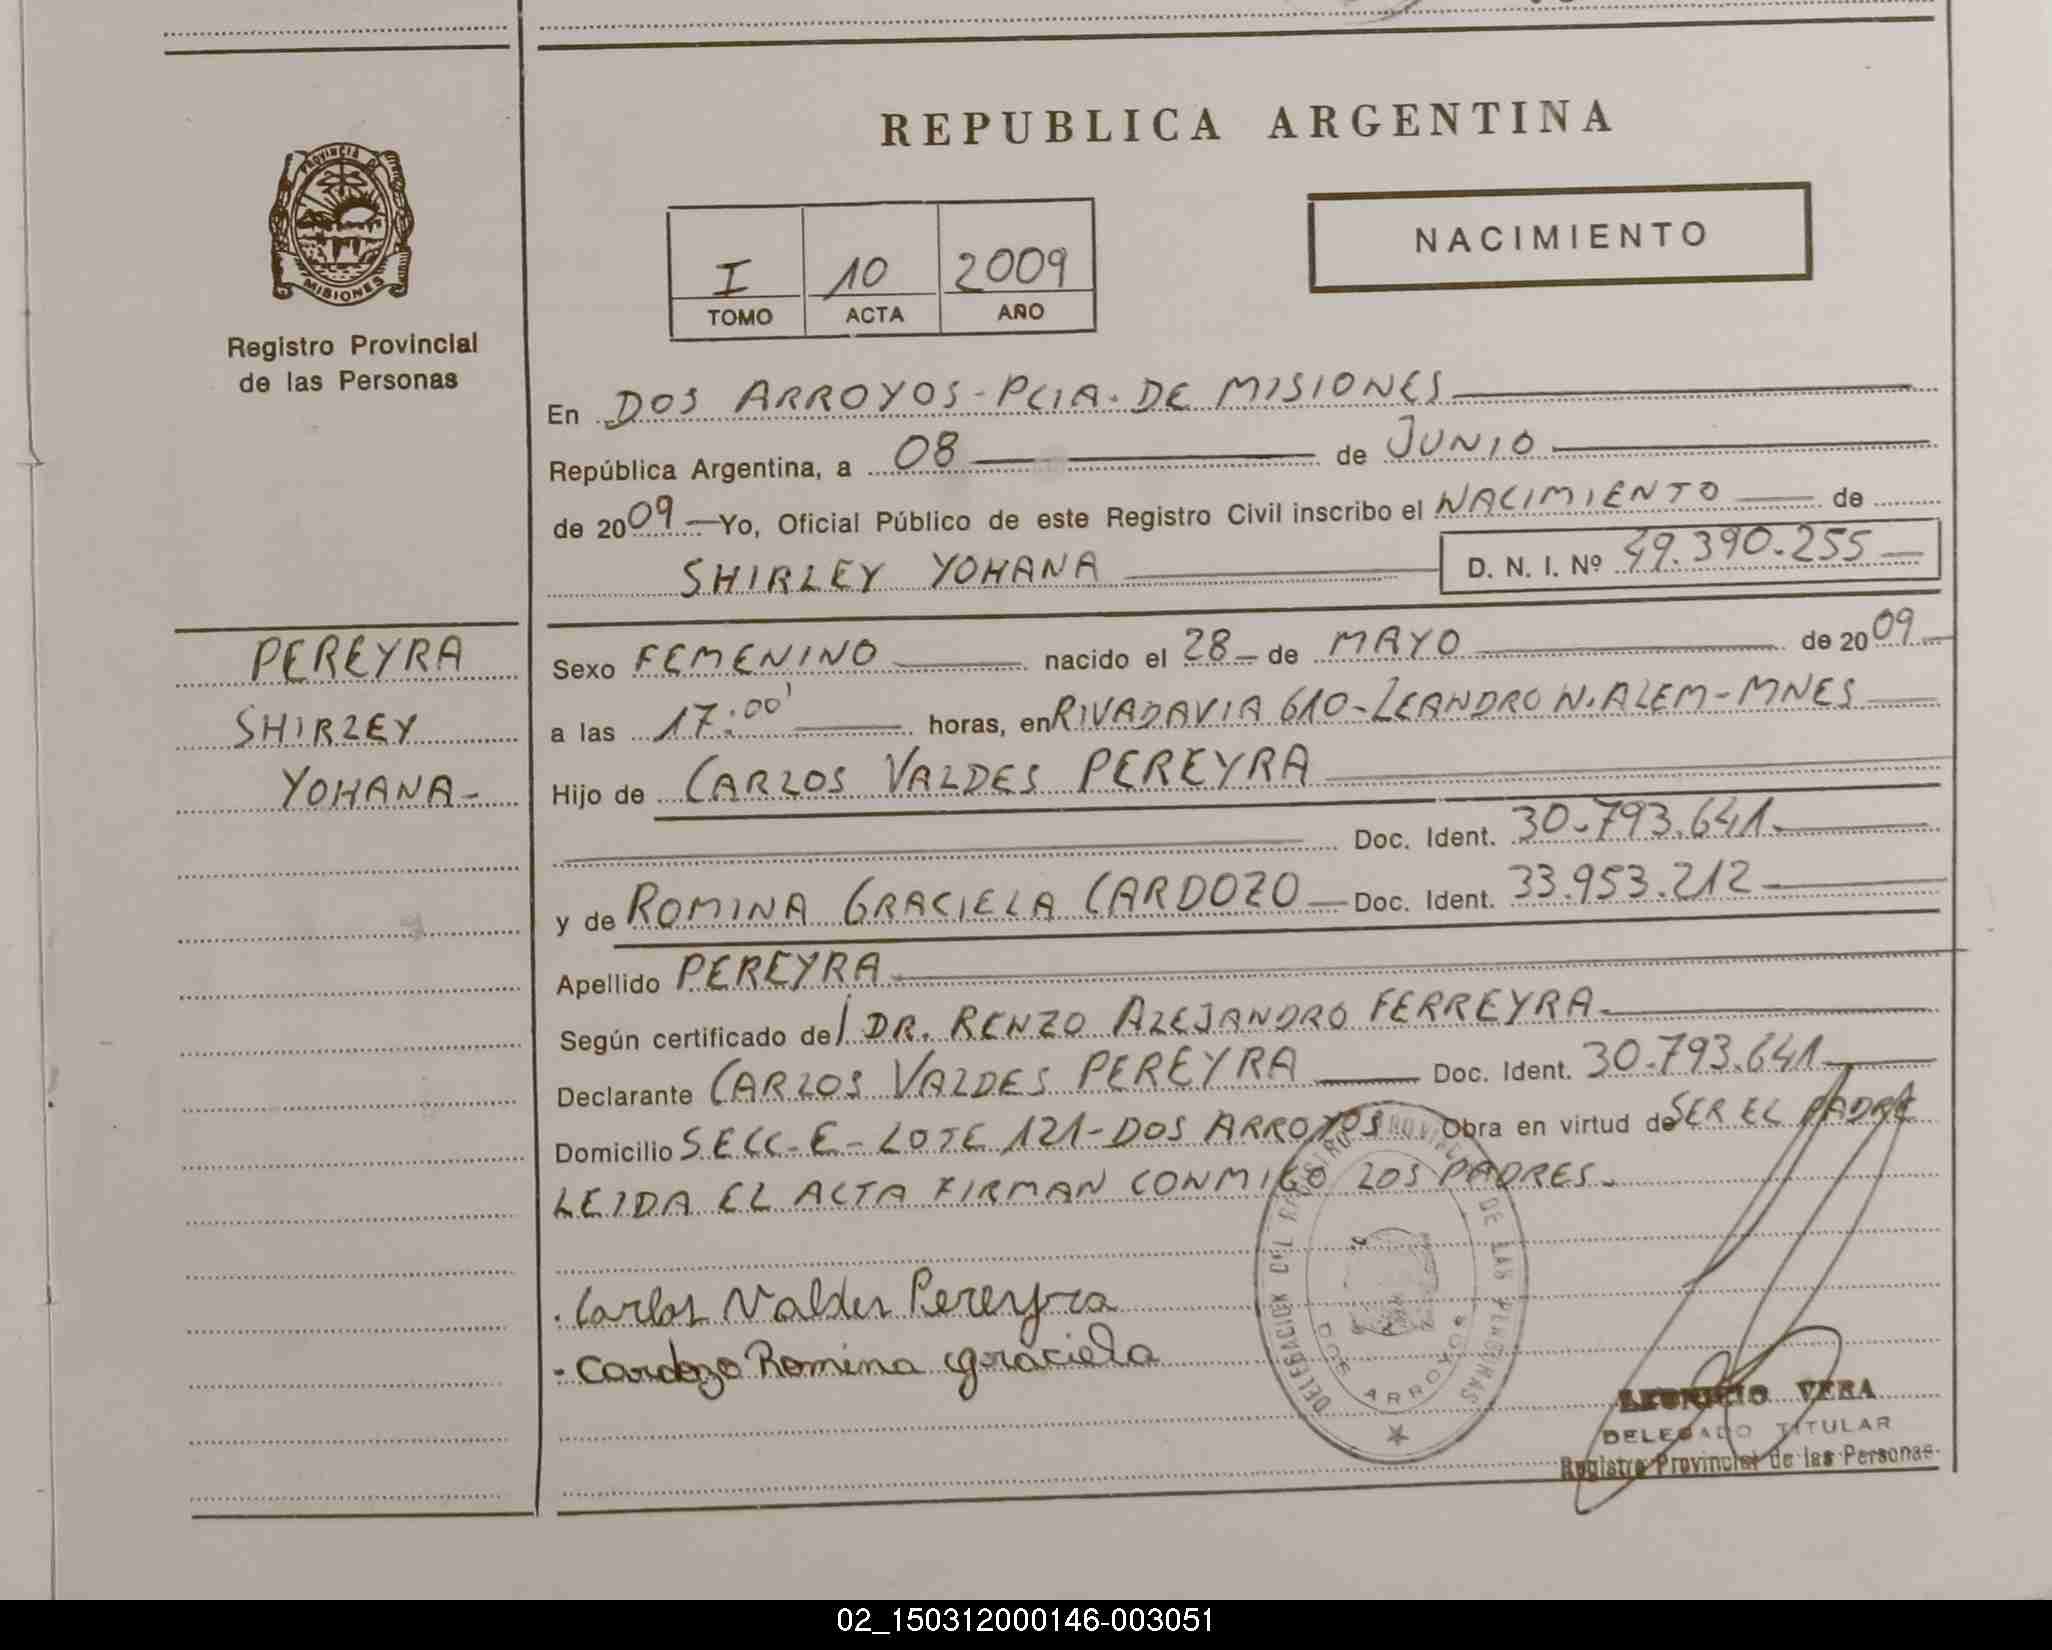 REPUBLICA ARGENTINA
PROVINCIA DE
MISIONES
Registro Provincial
de las Personas
I 10 2009
TOMO ACTA AÑO
NACIMIENTO
En DOS ARROYOS-PCIA. DE MISIONES
República Argentina, a 08 de JUNIO
de 2009 Yo, Oficial Público de este Registro Civil inscribo el NACIMIENTO de
SHIRLEY YOHANA D. N. I. Nº 49.390.255
PEREYRA
SHIRLEY
YOHANA-
Sexo FEMENINO nacido el 28 de MAYO de 2009
a las 17:00' horas, en RIVADAVIA 610-LEANDRO N. ALEM-MNES
Hijo de CARLOS VALDES PEREYRA
Doc. Ident. 30.793.641.
y de ROMINA GRACIELA CARDOZO Doc. Ident. 33.953.212
Apellido PEREYRA
Según certificado del DR. RENZO ALEJANDRO FERREYRA
Declarante CARLOS VALDES PEREYRA Doc. Ident. 30.793.641
Domicilio SECC-E-LOTE 121-DOS ARROYOS Obra en virtud de SER EL PADRE
LEIDA EL ACTA FIRMAN CONMIGO LOS PADRES.
Carlos Valdes Pereyra
- Cardozo Romina Graciela
DE LAS PERSONAS
DOS ARROYOS
VERA
DELEGADO TITULAR
Registro Provincial de las Personas
02_150312000146-003051